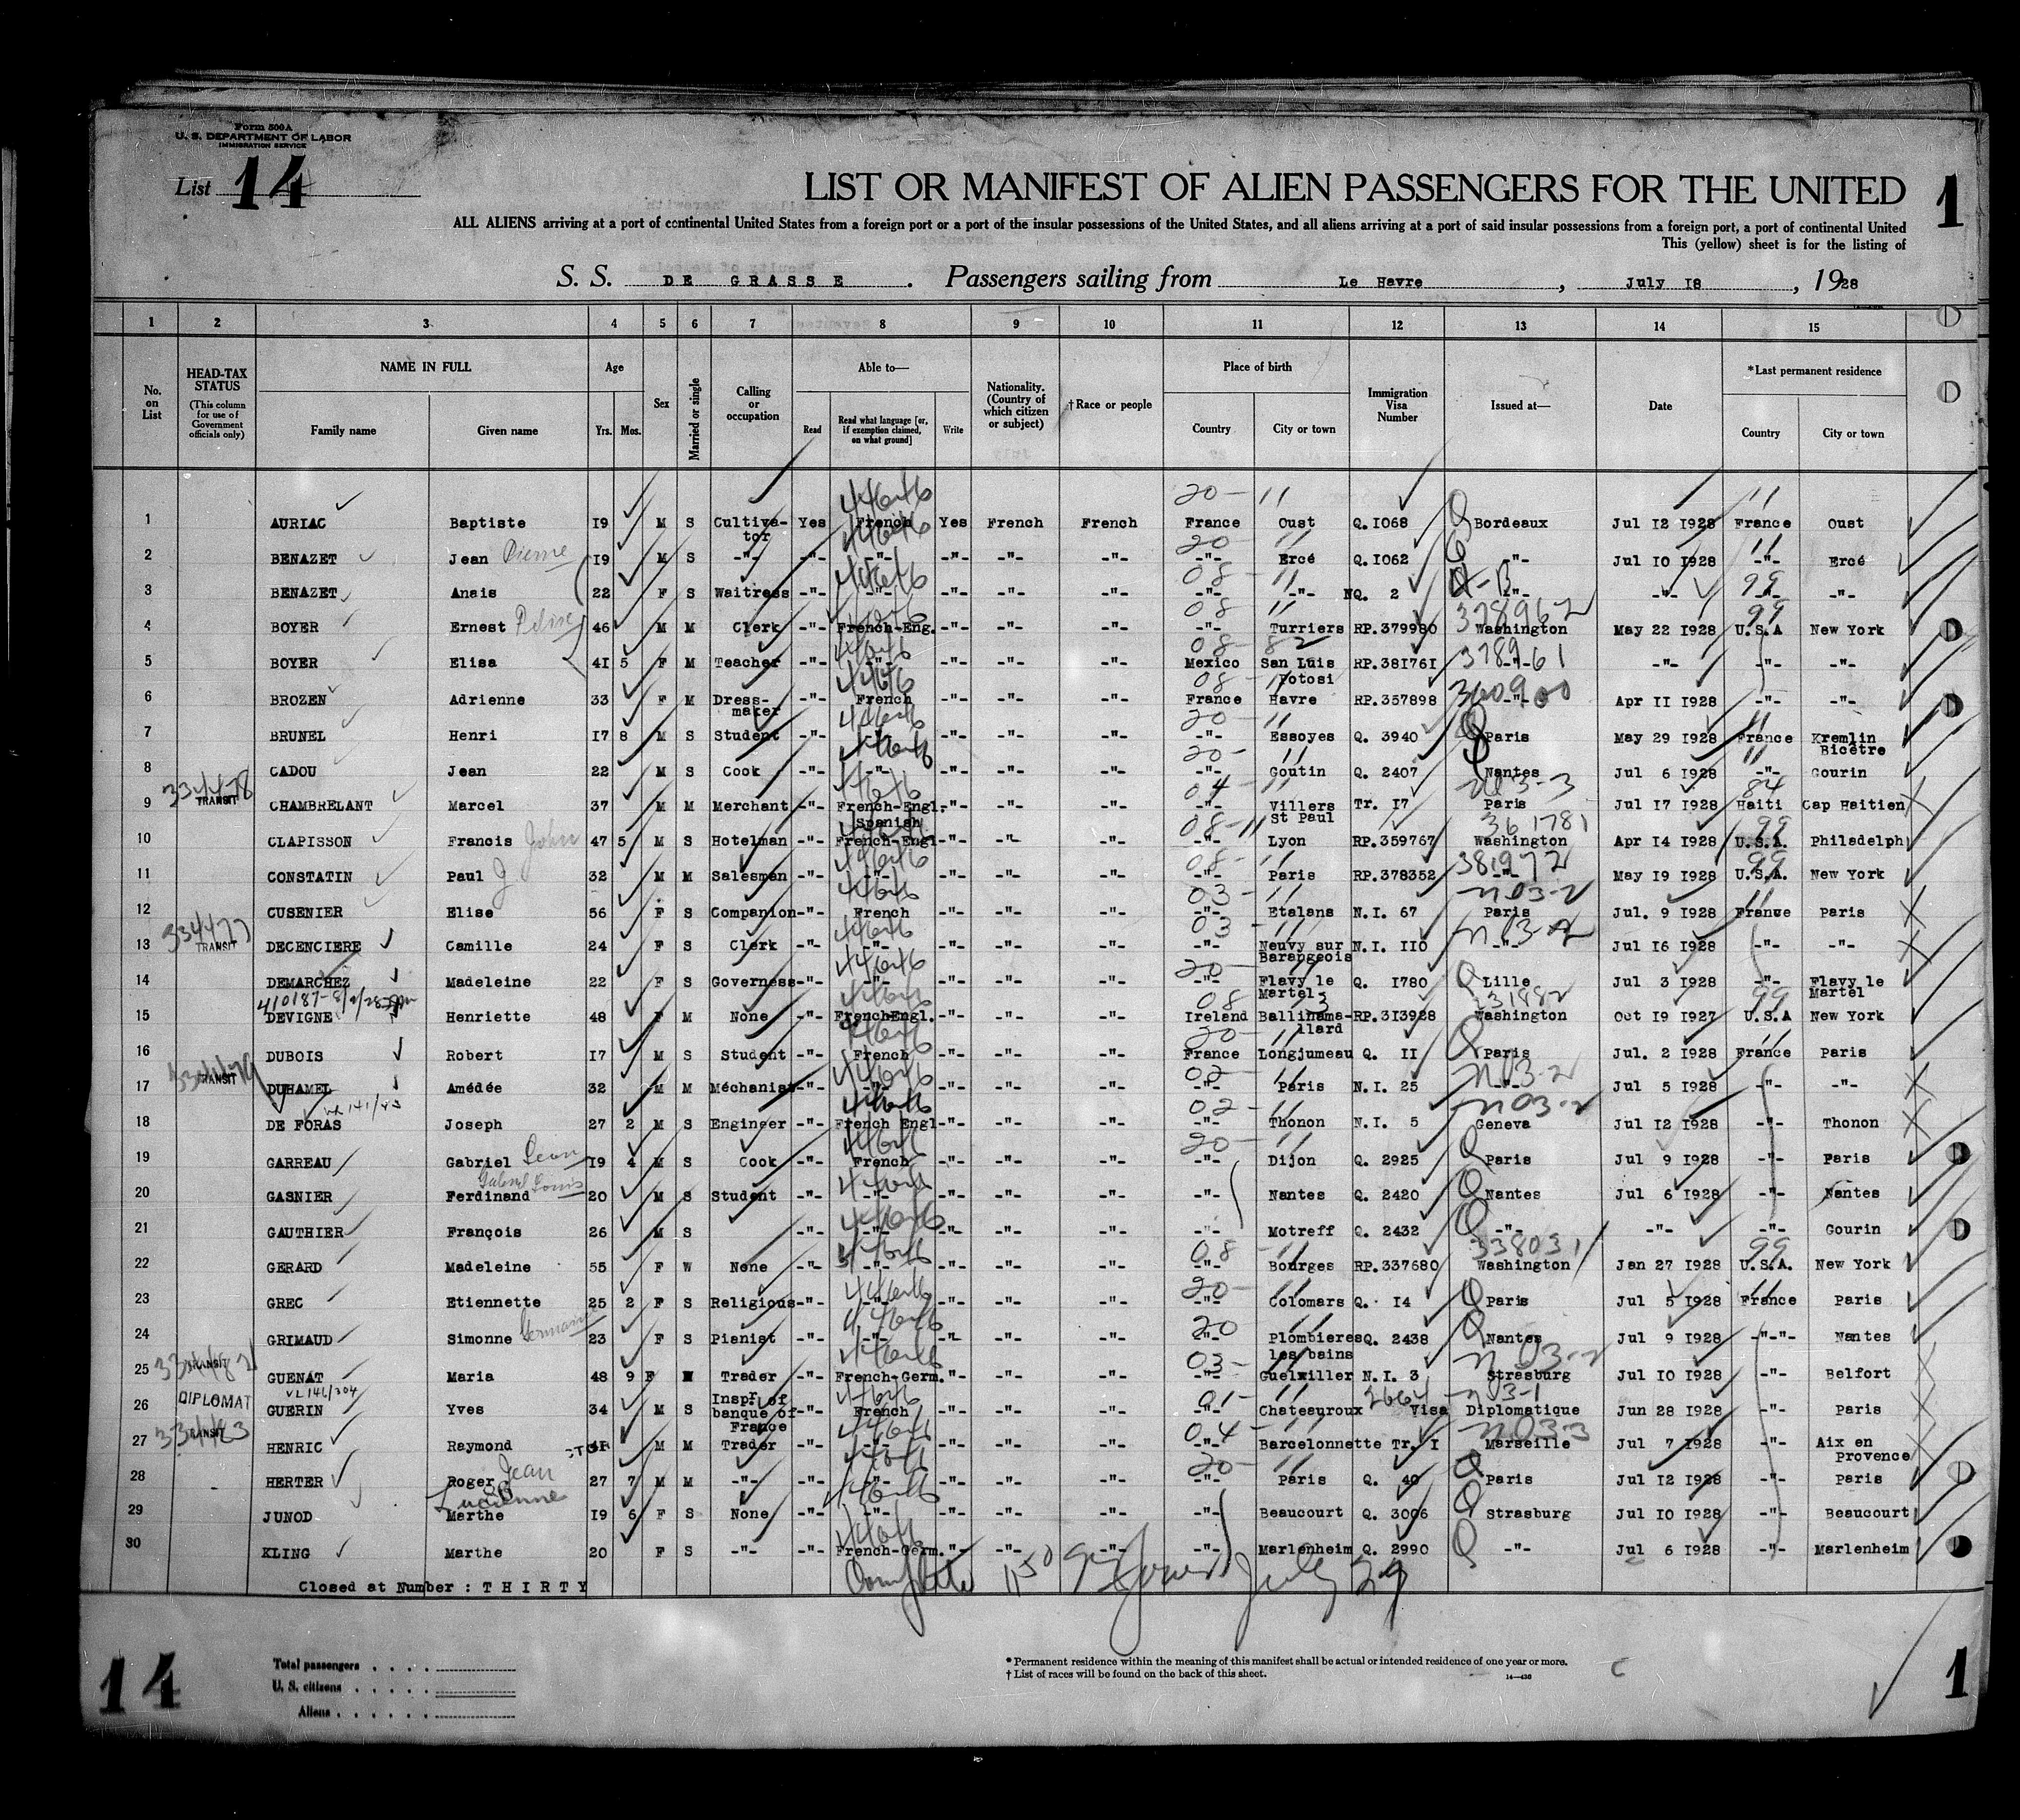 Form 500A
U. S. DEPARTMENT OF LABOR
IMMIGRATION SERVICE
List 14
LIST OR MANIFEST OF ALIEN PASSENGERS FOR THE UNITED 1
ALL ALIENS arriving at a port of continental United States from a foreign port or a port of the insular possessions of the United States, and all aliens arriving at a port of said insular possessions from a foreign port, a port of continental United
This (yellow) sheet is for the listing of
S. S. DE GRASSE . Passengers sailing from Le Havre , July 18 , 1928
1 2 3 4 5 6 7 8 9 10 11 12 13 14 15
No. on List
HEAD-TAX STATUS (This column for use of Government officials only)
NAME IN FULL
Family name Given name
Age
Yrs. Mos.
Sex
Married or single
Calling or occupation
Able to—
Read Read what language [or, if exemption claimed, on what ground] Write
Nationality. (Country of which citizen or subject)
†Race or people
Place of birth
Country City or town
Immigration Visa Number
Issued at—
Date
*Last permanent residence
Country City or town
1 AURIAC Baptiste 19 M S Cultivator Yes French Yes French French France Oust Q.1068 Bordeaux Jul 12 1928 France Oust
2 BENAZET Jean Pierre 19 M S -"- -"- -"- -"- -"- -"- -"- Ercé Q.1062 -"- Jul 10 1928 -"- Ercé
3 BENAZET Anais 22 F S Waitress -"- -"- -"- -"- -"- -"- -"- NQ. 2 -"- -"- -"- -"-
4 BOYER Ernest 46 M M Clerk -"- French-Eng. -"- -"- -"- -"- Turriers RP.379980 378962 Washington May 22 1928 U.S.A New York
5 BOYER Elisa 41 5 F M Teacher -"- -"- -"- -"- -"- Mexico San Luis Potosi RP.381761 378961 -"- -"- -"- -"-
6 BROZEN Adrienne 33 F M Dressmaker -"- French -"- -"- -"- France Havre RP.357898 360900 -"- Apr 11 1928 -"- -"-
7 BRUNEL Henri 17 8 M S Student -"- -"- -"- -"- -"- -"- Essoyes Q. 3940 Paris May 29 1928 France Kremlin Bicétre
8 CADOU Jean 22 M S Cook -"- -"- -"- -"- -"- -"- Goutin Q. 2407 Nantes Jul 6 1928 -"- Gourin
9 334478 TRANSIT CHAMBRELANT Marcel 37 M M Merchant -"- French-Engl. Spanish -"- -"- -"- -"- Villers St Paul Tr. 17 Paris Jul 17 1928 Haiti Cap Haitien
10 CLAPISSON Francis John 47 5 M S Hotelman -"- French-Engl -"- -"- -"- -"- Lyon RP.359767 361781 Washington Apr 14 1928 U.S.A. Philadelph
11 CONSTATIN Paul J. 32 M M Salesman -"- -"- -"- -"- -"- -"- Paris RP.378352 381972 -"- May 19 1928 U.S.A. New York
12 CUSENIER Elise 56 F S Companion -"- French -"- -"- -"- -"- Etalans N.I. 67 Paris Jul. 9 1928 France Paris
13 334477 TRANSIT DECENCIERE Camille 24 F S Clerk -"- -"- -"- -"- -"- -"- Neuvy sur Barangeois N.I. 110 -"- Jul 16 1928 -"- -"-
14 DEMARCHEZ Madeleine 22 F S Governess -"- -"- -"- -"- -"- -"- Flavy le Martel Q. 1780 Lille Jul 3 1928 -"- Flavy le Martel
15 DEVIGNE Henriette 48 F M None -"- FrenchEngl. -"- -"- -"- Ireland Ballinamallard RP.313928 Washington Oct 19 1927 U.S.A New York
16 DUBOIS Robert 17 M S Student -"- French -"- -"- -"- France Longjumeau Q. 11 Paris Jul. 2 1928 France Paris
17 TRANSIT DUHAMEL Amédée 32 M M Méchanist -"- -"- -"- -"- -"- -"- Paris N.I. 25 -"- Jul 5 1928 -"- -"-
18 DE FORAS Joseph 27 2 M S Engineer -"- French Engl -"- -"- -"- -"- Thonon N.I. 5 Geneva Jul 12 1928 -"- Thonon
19 GARREAU Gabriel Leon 19 4 M S Cook -"- French -"- -"- -"- -"- Dijon Q. 2925 Paris Jul 9 1928 -"- Paris
20 GASNIER Gabriel Louis Ferdinand 20 M S Student -"- -"- -"- -"- -"- -"- Nantes Q. 2420 Nantes Jul 6 1928 -"- Nantes
21 GAUTHIER François 26 M S -"- -"- -"- -"- -"- -"- Motreff Q. 2432 -"- -"- -"- Gourin
22 GERARD Madeleine 55 F W None -"- -"- -"- -"- -"- -"- Bourges RP.337680 338031 Washington Jan 27 1928 U.S.A. New York
23 GREC Etiennette 25 2 F S Religious -"- -"- -"- -"- -"- -"- Colomars Q. 14 Paris Jul 5 1928 France Paris
24 GRIMAUD Simonne Germaine 23 F S Pianist -"- -"- -"- -"- -"- -"- Plombieres les bains Q. 2438 Nantes Jul 9 1928 -"-"- Nantes
25 TRANSIT GUENAT Maria 48 9 F Trader -"- French-Germ. -"- -"- -"- -"- Guelwiller N.I. 3 Strasburg Jul 10 1928 -"- Belfort
26 DIPLOMAT GUERIN Yves 34 M S Insp. of banque of France -"- French -"- -"- -"- -"- Chateauroux 2664 Visa Diplomatique Jun 28 1928 -"- Paris
27 334483 TRANSIT HENRIC Raymond M M Trader -"- -"- -"- -"- -"- -"- Barcelonnette Tr. I Marseille Jul 7 1928 -"- Aix en Provence
28 HERTER Roger Jean 27 7 M M -"- -"- -"- -"- -"- -"- -"- Paris Q. 40 Paris Jul 12 1928 -"- Paris
29 JUNOD Lucienne Marthe 19 6 F S None -"- -"- -"- -"- -"- -"- Beaucourt Q. 3006 Strasburg Jul 10 1928 -"- Beaucourt
30 KLING Marthe 20 F S -"- -"- French-Germ. -"- -"- -"- -"- Marlenheim Q. 2990 -"- Jul 6 1928 -"- Marlenheim
Closed at Number : THIRTY
July 29
14
Total passengers
U. S. citizens
Aliens
* Permanent residence within the meaning of this manifest shall be actual or intended residence of one year or more.
† List of races will be found on the back of this sheet.
14—436
1